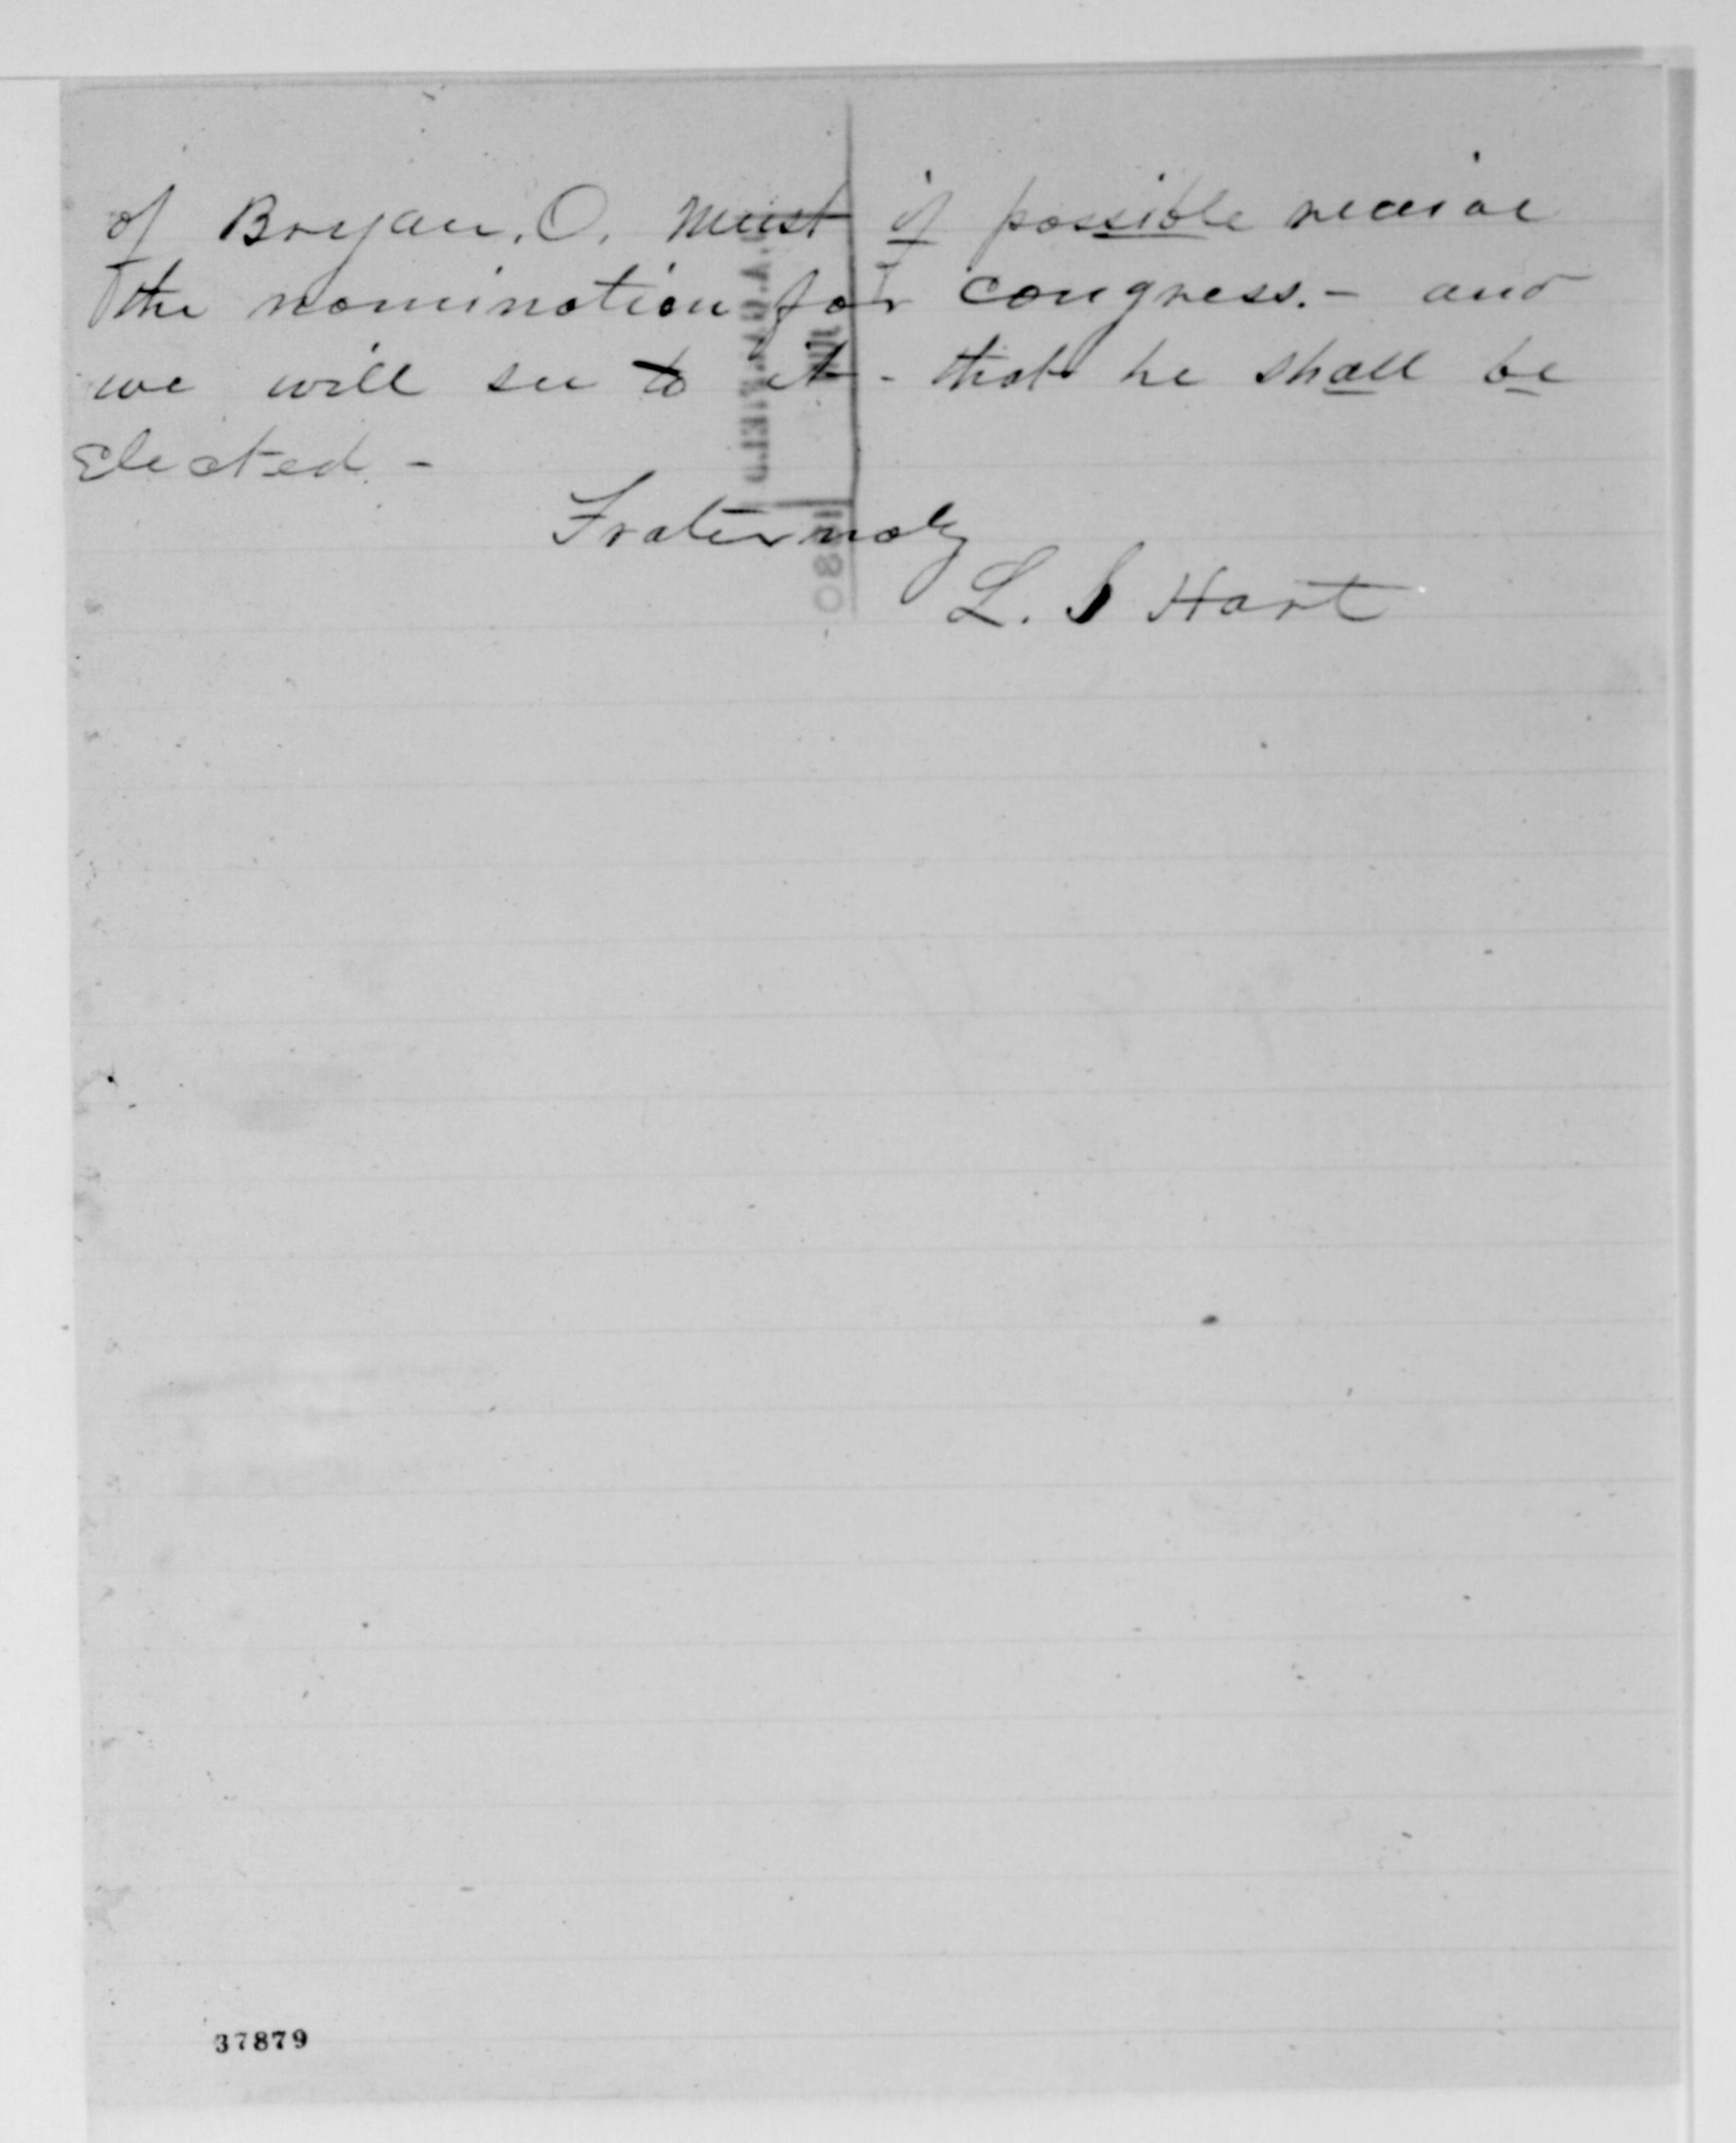 of Bryan. O. Must if possible receive
the nomination for congress. - and
we will see to it - that he shall be
Elected. -
Fraternaly
L. S Hart
37879